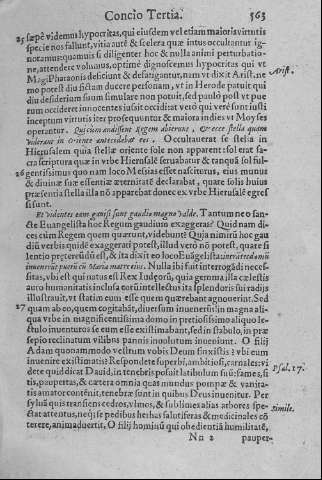 Concio Tertia.
563
25 sæpè videmus hypocritas, qui eiusdem vel etiam maioris virtutis
specie nos fallunt, vitia autē & scelera quæ intus occultantur ig-
noramus: quamuis si diligenter hoc & nulla animi perturbatio-
ne, attendere volumus, optimè dignoscemus hypocritas qui vt
Magi Pharaonis deficiunt & defatigantur, nam vt dixit Arist. ne
Arist.
mo potest diu fictam ducere personam, vt in Herode patuit qui
diu desiderium suum simulare non potuit, sed paulò post vt pue
rum occideret innocentes iussit occidi at verò qui verè sunt iusti
inceptum virtutis iter prosequuntur & maiora indies vt Moyses
operantur. Qui cum audissent Regem abierunt, & ecce stella quam
viderant in oriente antecedebat eos. Occultauerat se stella in
Hierusalem quia stellæ oriente sole non apparent: sol erat sa-
cra scriptura quæ in vrbe Hierusalē seruabatur & tanquā sol ful-
26 gentissimus quo nam loco Messias esset nasciturus, eius munus
& diuinæ suæ essentiæ æternitatē declarabat, quare solis huius
præsentia stella illa nō apparebat donec ex vrbe Hierusalē egres
si sunt.
Et videntes eum gauisi sunt gaudio magno valde. Tantum neo san-
cte Euangelista hoc Regum gaudium exaggeras? Quid nam di-
ces cùm Regem quem quærunt, videbunt? Quia nimirū hoc gau
diū verbis quidē exaggerari potest, illud verò nō potest, quare si
lentio prętereūdū est, & ita dixit eo loco Euāgelista intrātes domū
inuenerūt puerū cū Maria matre eius. Nulla ibi fuit interrogādi necessi-
tas, vbi est qui natus est Rex Iudęorū, quia gemma illa cælestis
auro humanitatis inclusa eorū intellectus ita splendoris sui radijs
illustrauit, vt statim eum esse quem quærebant agnouerint. Sed
27 quam ab eo, quem cogitabāt, diuersum inuenerūt! in magna ali-
qua vrbe in magnificentissima domo in pretiosissimo aliquo le-
ctulo inuenturos se eum esse existimabant, sed in stabulo, in præ
sepio reclinatum vilibus pannis inuolutum inueniunt. O filij
Adam quonam modo vestrum vobis Deum finxistis? vbi eum
inuenire existimatis? Respondete superbi, ambitiosi, carnales: vi
dete quid dicat Dauid, in tenebris posuit latibulum suū: fames, si
Psal. 17.
tis, paupertas, & cætera omnia quæ mundus pompæ & vanita-
tis amator contēnit, tenebræ sunt in quibus Deus inuenitur. Per
syluā quis transiens cedros, vlmos, & sublimes alias arbores spe-
Simile.
ctat attentus, neq; se pedibus herbas salutiferas & medicinales cō
terere, animaduertit. O filij hominū qui obedientiā humilitatē,
Nn 2
pauper-